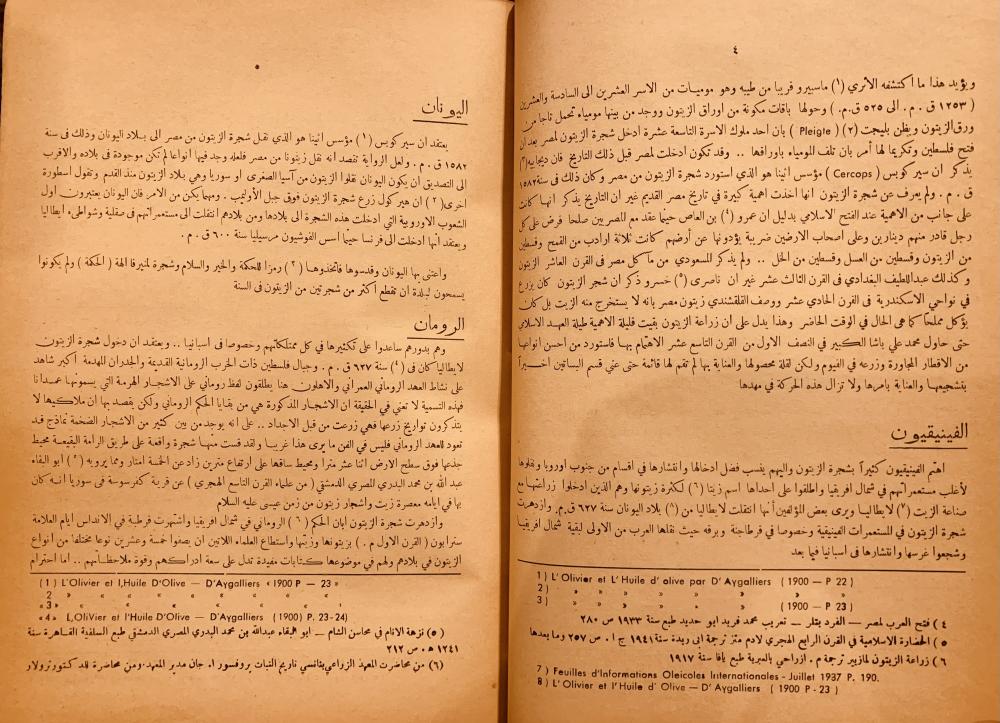 ٤
ويؤيد هذا ما اكتشفه الاثري (١) ماسبيرو قريبا من طيبه وهو موميات من الاسر العشرين الى السادسة والعشرين
( ١٢٥٣ ق . م . الى ٥٢٥ ق.م. ) وحولها باقات مكونة من اوراق الزيتون ووجد من بينها مومياء تحمل تاجا من
ورق الزيتون ويظن بليجت (٢) ( Pleigte ) بان احد ملوك الاسرة التاسعة عشرة ادخل شجرة الزيتون لمصر بعد ان
فتح فلسطين وتكريما لها أمر بان تلف المومياء باوراقها .. وقد تكون أدخلت لمصر قبل ذلك التاريخ فان
يذكر ان سير كوبس ( Cercops ) مؤسس اثينا هو الذي استورد شجرة الزيتون من مصر وكان ذلك في سنة ١٥٨٢
ق . م . ولم يعرف عن شجرة الزيتون انها اخذت اهمية كبيرة في تاريخ مصر القديم غير ان التاريخ يذكر انها كانت
على جانب من الاهمية عند الفتح الاسلامي بدليل ان عمرو (٤) بن العاص حينما عقد مع المصريين صلحا فرض على كل
رجل قادر منهم دينارين وعلى اصحاب الارضين ضريبة يؤدونها عن أرضهم كانت ثلاثة ارادب من القمح وقسطين
من الزيتون وقسطين من العسل وقسطين من الخل .. ولم يذكر المسعودي من مآكل مصر في القرن العاشر الزيتون
وكذلك عبداللطيف البغدادي في القرن الثالث عشر غير ان ناصرى (٥) خسرو ذكر ان شجر الزيتون كان يزرع
في نواحي الاسكندرية في القرن الحادي عشر ووصف القلقشندي زيتون مصر بانه لا يستخرج منه الزيت بل كان
يؤكل مملحا كما هى الحال في الوقت الحاضر وهذا يدل على ان زراعة الزيتون بقيت قليلة الاهمية طيلة العهد الاسلامي
حتى حاول محمد علي باشا الكبير في النصف الاول من القرن التاسع عشر الاهتمام بها فاستورد من احسن انواعها
من الاقطار المجاورة وزرعه في الفيوم ولكن لقلة محصولها والعناية بها لم تقم لها قائمة حتى عني قسم البساتين اخيراً
بتشجيعها والعناية بامرها ولا تزال هذه الحركة في مهدها
الفينيقيون
اهتم الفينيقيون كثيراً بشجرة الزيتون واليهم ينسب فضل ادخالها وانتشارها في اقسام من جنوب اوروبا ونقلوها
لأغلب مستعمراتهم في شمال افريقيا واطلقوا على احداها اسم زيتا (٦) لكثرة زيتونها وهم الذين ادخلوا زراعتها مع
صناعة الزيت (٧) لايطاليا ويرى بعض المؤلفين أنها انتقلت لايطاليا من (٨) بلاد اليونان سنة ٦٢٧ ق.م. وازدهرت
شجرة الزيتون في المستعمرات الفينيقية وخصوصا في قرطاجنة وبرقه حيث نقلها العرب من الاولى لبقية شمال افريقيا
وشجعوا غرسها وانتشارها في اسبانيا فيما بعد
1 ) L'Olivier et L'Huile d'olive par D'Aygalliers ( 1900 — P 22 )
2 ) » » » » » » »
3 ) » » » » » ( 1900 — P 23 )
٤ ) فتح العرب مصر — الفرد بتلر — تعريب محمد فريد ابو حديد طبع سنة ١٩٣٣ ص ٢٨٠
٥ ) الحضارة الاسلامية في القرن الرابع الهجري لادم متز ترجمة ابى ريدة سنة ١٩٤١ ج ١ . ص ٢٥٧ وما بعدها
٦ ) زراعة الزيتون لمازيير ترجمة م . ازراحي بالعبرية طبع يافا سنة ١٩١٧
7 ) Feuilles d'Informations Oleicoles Internationales - Juillet 1937 P. 190.
8 ) L'Olivier et l'Huile d'Olive — D'Aygalliers ( 1900 P - 23 )
اليونان
يعتقد ان سير كوبس (١) مؤسس اثينا هو الذي نقل شجرة الزيتون من مصر الى بلاد اليونان وذلك في سنة
١٥٨٢ ق . م . ولعل الرواية تقصد انه نقل زيتونا من مصر فلعله وجد فيها أنواعا لم تكن موجودة في بلاده والاقرب
الى التصديق ان يكون اليونان نقلوا الزيتون من آسيا الصغرى او سوريا وهي بلاد الزيتون منذ القدم وتقول اسطورة
اخرى (٢) ان هيركول زرع شجرة الزيتون فوق جبل الأوليمب . ومهما يكن من الامر فان اليونان يعتبرون اول
الشعوب الاوروبية التي ادخلت هذه الشجرة الى بلادها ومن بلادهم انتقلت الى مستعمراتهم في صقلية وشواطىء ايطاليا
ويعتقد أنها ادخلت الى فرنسا حينما اسس الفوشيون مرسيليا سنة ٦٠٠ ق . م .
واعتنى بها اليونان وقدسوها فاتخذوها (٣) رمزا للحكمة والخير والسلام وشجرة لمنيرفا الهة ( الحكمة ) ولم يكونوا
يسمحون لبلدة ان تقطع اكثر من شجرتين من الزيتون في السنة
الرومان
وهم بدورهم ساعدوا على تكثيرها في كل ممتلكاتهم وخصوصا في اسبانيا .. ويعتقد ان دخول شجرة الزيتون
لايطاليا كان في (٤) سنة ٦٢٧ ق . م . وجبال فلسطين ذات الخرب الرومانية القديمة والجدران المهدمة أكبر شاهد
على نشاط العهد الروماني العمراني والاهلون هنا يطلقون لفظ روماني على الاشجار الهرمة التي يسمونها عمدانا
فهذه التسمية لا تعني في الحقيقة ان الاشجار المذكورة هي من بقايا الحكم الروماني ولكن يقصد بها ان ملاكيها لا
يتذكرون تواريخ زرعها فهي زرعت من قبل الاجداد .. على انه يوجد من بين كثير من الاشجار الضخمة نماذج قد
تعود للعهد الروماني فليس في الفن ما يرى هذا غريبا ولقد قست منها شجرة واقعة على طريق الرامة البقيعة محيط
جذعها فوق سطح الارض اثنا عشر متراً ومحيط ساقها على ارتفاع مترين زاد عن الخمسة امتار ومما يرويه (٥) ابو البقاء
عبد الله بن محمد البدري المصري الدمشقي ( من علماء القرن التاسع الهجري ) عن قرية كفرسوسة في سوريا انه كان
بها في ايامه معصرة زيت واشجار زيتون من زمن عيسى عليه السلام
وازدهرت شجرة الزيتون ابان الحكم (٦) الروماني في شمال افريقيا واشتهرت قرطبة في الاندلس ايام العلامة
سترابون ( القرن الاول م . ) بزيتونها وزيتها واستطاع العلماء اللاتين ان يصفوا خمسة وعشرين نوعا مختلفا من انواع
الزيتون في بلادهم ولهم في موضوعها كتابات مفيدة تدل على سعة ادراكهم وقوة ملاحظاتهم .. اما احترام
(1) L'Olivier et l,Huile D'Olive — D'Aygalliers « 1900 P — 23 »
2 « « « « « « « «
«3» « « « « « « « «
«4» L,OliVier et l'Huile D'Olive — D'Aygalliers (1900) P. 23-24)
(٥) نزهة الانام في محاسن الشام — ابو البقاء عبدالله بن محمد البدري المصري الدمشقي طبع السلفية القاهرة سنة
١٢٤١ هـ . ص ٢١٢
(٦) من محاضرات المعهد الزراعي بنانسي تاريخ النبات بروفسور ا . جان مدير المعهد . ومن محاضرة للدكتور تولار